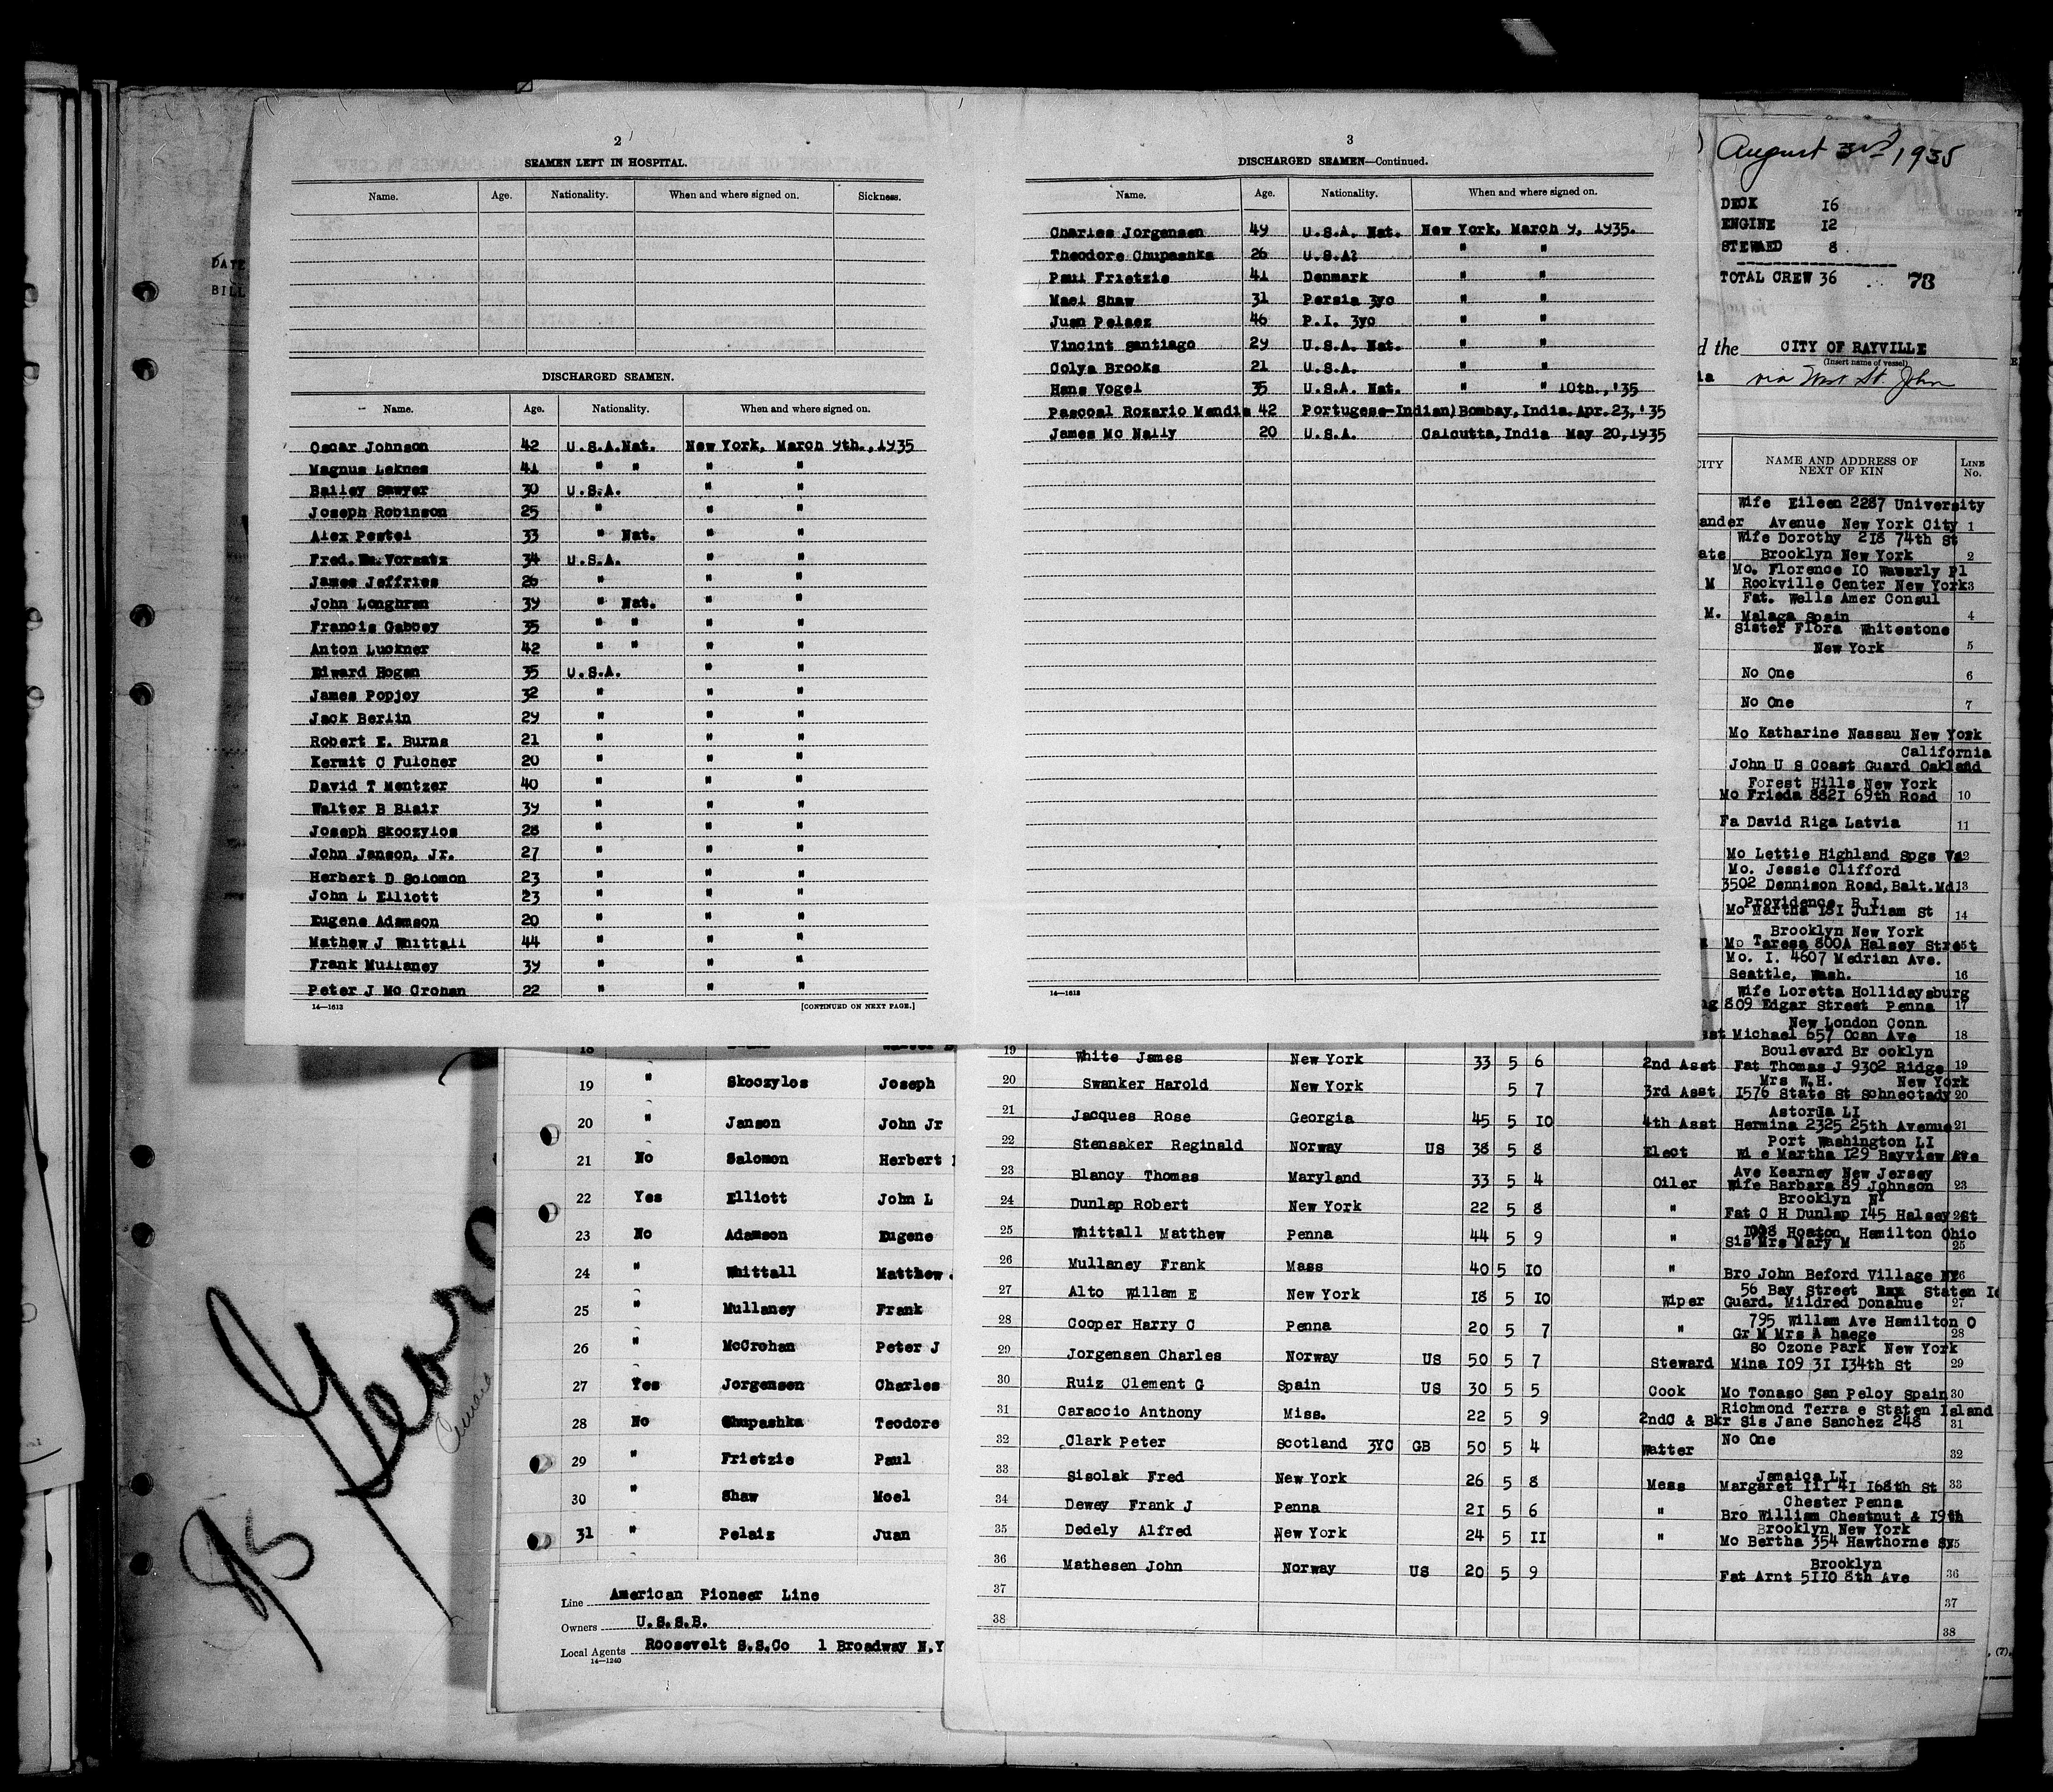 2
SEAMEN LEFT IN HOSPITAL.
Name. Age. Nationality. When and where signed on. Sickness.
DISCHARGED SEAMEN.
Name. Age. Nationality. When and where signed on.
Oscar Johnson 42 U.S.A.Nat. New York, March 9th.,1935
Magnus Leknes 41 " " " "
Bailey Sawyer 30 U.S.A. " "
Joseph Robinson 25 " " "
Alex Pestel 33 " Nat. " "
Fred. Wm. Vorsatz 34 U.S.A. " "
James Jeffries 26 " " "
John Longhran 39 " Nat. " "
Francis Gabbey 35 " " " "
Anton Luckner 42 " " " "
Edward Hogan 35 U.S.A. " "
James Popjoy 32 " " "
Jack Berlin 29 " " "
Robert E. Burns 21 " " "
Kermit C Fulcher 20 " " "
David T Mentzer 40 " " "
Walter B Blair 39 " " "
Joseph Skoczylos 28 " " "
John Janson, Jr. 27 " " "
Herbert D Solomon 23 " " "
John L Elliott 23 " " "
Eugene Adamson 20 " " "
Mathew J Whittall 44 " " "
Frank Mullaney 39 " " "
Peter J Mc Crohan 22 " " "
14—1613 [CONTINUED ON NEXT PAGE.]
3
DISCHARGED SEAMEN—Continued.
Name. Age. Nationality. When and where signed on.
Charles Jorgensen 49 U.S.A. Nat. New York, March 9, 1935.
Theodore Chupashka 26 U.S.A? " "
Paul Frietzie 41 Denmark " "
Mael Shaw 31 Persia 3yc " "
Juan Pelaez 46 P.I. 3yc " "
Vincint Santiago 29 U.S.A. Nat. " "
Colya Brooks 21 U.S.A. " "
Hans Vogel 35 U.S.A. Nat. " " 10th.,'35
Pascoal Rozario Mendis 42 Portugese-Indian) Bombay, India. Apr.23,'35
James Mc Nally 20 U.S.A. Calcutta, India May 20,1935
14—1613
August 3rd 1935
DECK 16
ENGINE 12
STEWARD 8
TOTAL CREW 36
73
d the CITY OF RAYVILLE
(Insert name of vessel)
ia via West St. John
CITY NAME AND ADDRESS OF NEXT OF KIN LINE No.
Wife Eileen 2287 University
ander Avenue New York City 1
Wife Dorothy 218 74th St
ate Brooklyn New York 2
Mo. Florence 10 Waverly Pl
M Rockville Center New York 3
Fat. Wells Amer Consul
M. Malaga Spain 4
Sister Flora Whitestone
New York 5
No One 6
No One 7
Mo Katharine Nassau New York
California
John U S Coast Guard Oakland
Forest Hills New York
Mo Frieda 8821 69th Road 10
Fa David Riga Latvia 11
Mo Lettie Highland Spgs Va 12
Mo. Jessie Clifford
3502 Dennison Road, Balt. Md 13
Providence R I
Mo Martha 131 Juliam St 14
Brooklyn New York
Mo Taresa 800A Halsey Street
Mo. I. 4607 Medrian Ave.
Seattle, Wash. 16
Wife Loretta Hollidaysburg
809 Edgar Street Penna 17
New London Conn
Michael 657 Ocan Ave 18
DATE
BILL
19 " Skoczylos Joseph
20 " Janson John Jr
21 No Salomon Herbert
22 Yes Elliott John L
23 No Adamson Eugene
24 " Whittall Matthew
25 " Mullaney Frank
26 " McCrohan Peter J
27 Yes Jorgensen Charles
28 No Chupashka Teodore
29 " Frietzie Paul
30 " Shaw Moel
31 " Pelaiz Juan
Line American Pioneer Line
Owners U.S.S.B.
Local Agents Roosevelt S.S.Co 1 Broadway N.Y
14—1240
Boulevard Br ooklyn
19 White James New York 33 5 6 2nd Asst Fat Thomas J 9302 Ridge 19
Mrs W.H. New York
20 Swanker Harold New York 5 7 3rd Asst 1576 State St Schnectady 20
Astoria LI
21 Jacques Rose Georgia 45 5 10 4th Asst Hermina 2325 25th Avenue 21
Port Washington LI
22 Stensaker Reginald Norway US 38 5 8 Elect Wi e Martha 129 Bayview Ave
Ave Kearney New Jersey
23 Blancy Thomas Maryland 33 5 4 Oiler Wife Barbara 89 Johnson 23
Brooklyn NY
24 Dunlap Robert New York 22 5 8 " Fat C H Dunlap 145 Halsey St
Hamilton Ohio
25 Whittall Matthew Penna 44 5 9 " Sis Mrs Mary M 25
26 Mullaney Frank Mass 40 5 10 " Bro John Beford Village NY
56 Bay Street Staten Is
27 Alto Willam E New York 18 5 10 Wiper Guard. Mildred Donahue 27
795 Willam Ave Hamilton O
28 Cooper Harry C Penna 20 5 7 " Gr M Mrs A haege 28
So Ozone Park New York
29 Jorgensen Charles Norway US 50 5 7 Steward Mina 109 31 134th St 29
30 Ruiz Clement G Spain US 30 5 5 Cook Mo Tonaso San Peloy Spain 30
Richmond Terra e Staten Island
31 Caraccio Anthony Miss. 22 5 9 2ndC & Bkr Sis Jane Sanchez 248 31
32 Clark Peter Scotland 3YC GB 50 5 4 Waiter No One 32
Jamaica LI
33 Sisolak Fred New York 26 5 8 Mess Margaret 111 41 168th St 33
Chester Penna
34 Dewey Frank J Penna 21 5 6 " Bro William Chestnut & 19th
Brooklyn New York
35 Dedely Alfred New York 24 5 11 " Mo Bertha 354 Hawthorne
Brooklyn
36 Mathesen John Norway US 20 5 9 Fat Arnt 5110 8th Ave 36
37 37
38 38